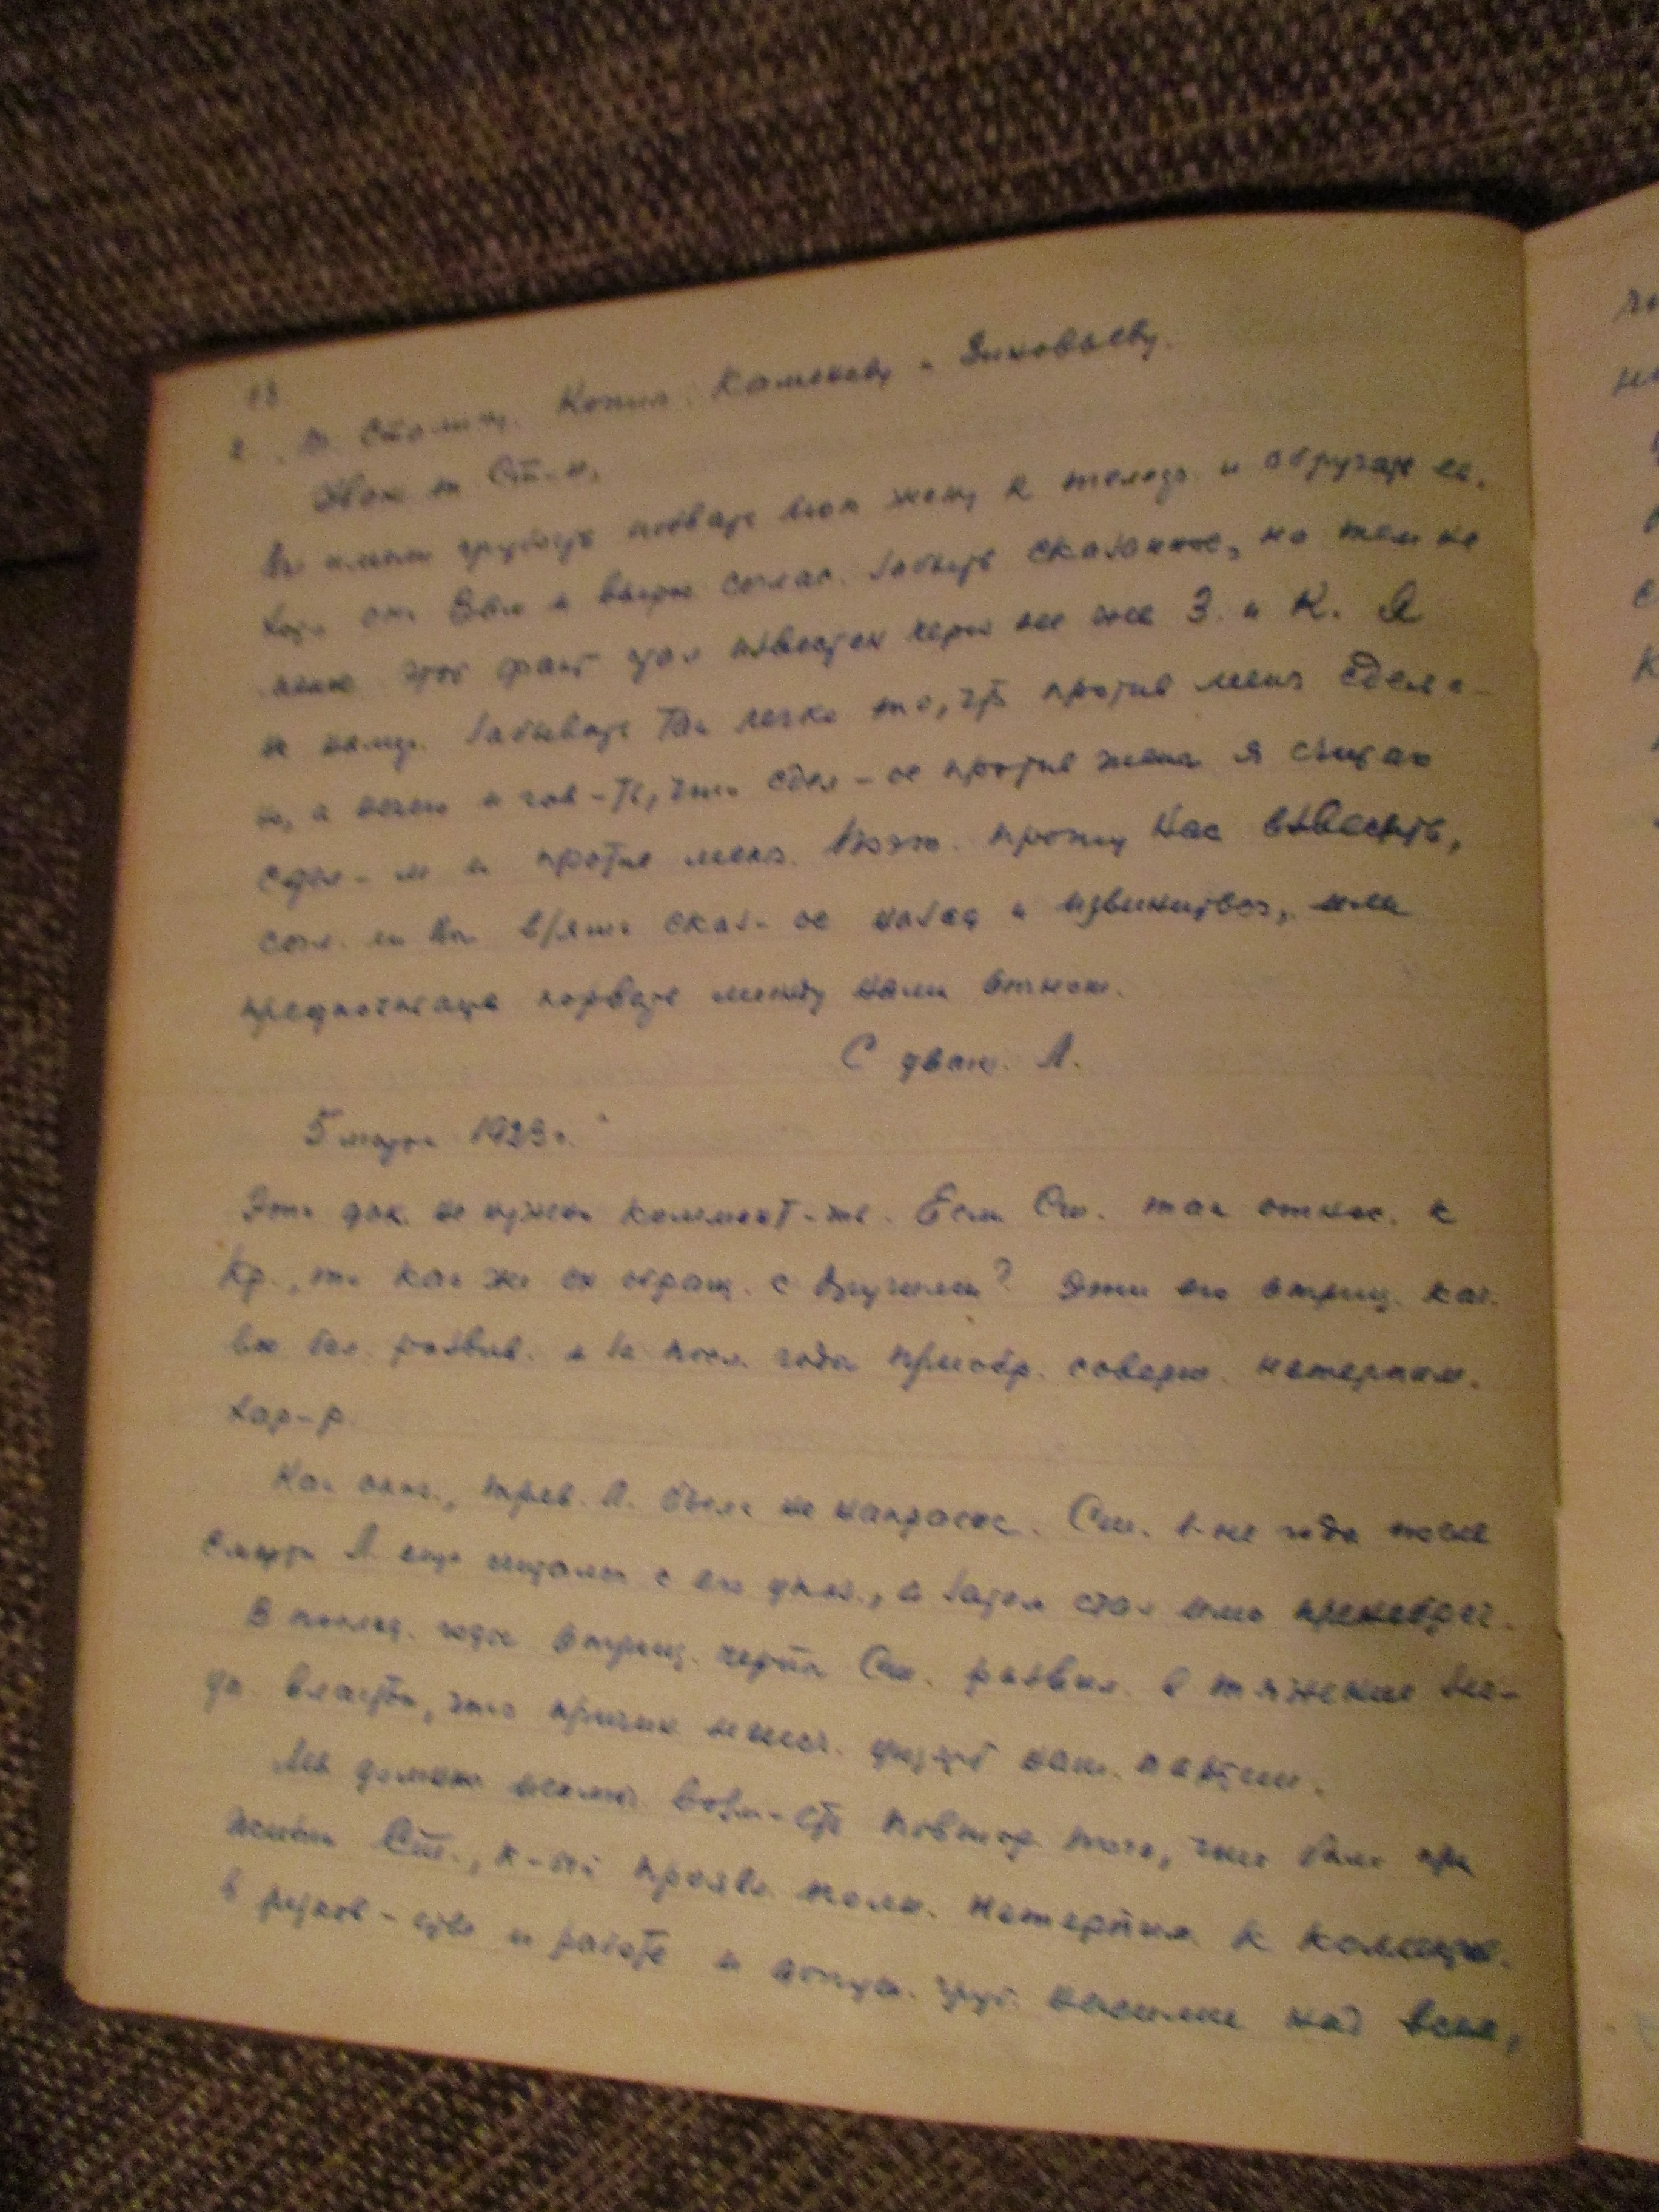 18
2. „Т. Сталину. Копия: Каменеву и Зиновьеву.
Уваж. т. Ст-н,
Вы имели грубость позвать мою жену к телеф. и обругать ее.
Хотя она Вам и выраж. соглас. забыть сказанное, но тем не
менее этот факт стал известен через нее же З. и К. Я
не намер. забывать так легко то, что против меня сдела-
но, а нечего и гов-ть, что сдел-ое против жены я считаю
сдел-м и против меня. Поэт. прошу Вас взвесить,
согл. ли Вы взять сказ-ое назад и извиниться, или
предпочитаете порвать между нами отнош.
С уваж. Л.
5 марта 1923 г."
Эти док. не нужно коммент-ть. Если Ст. так относ. к
Кр., то как же он обращ. с другими? Эти его отриц. кач.
все бол. развив. и за посл. годы приобр. соверш. нетерпим.
хар-р.
Как оказ., трев. Л. была не напрасна. Ст. 1-ые годы после
смерти Л. еще считался с его указ., а затем стал ими пренебрег.
В послед. годы отриц. черты Ст. развил. в тяжелые зло-
уп. властью, что причин. неисч. ущерб наш. партии.
Мы должны исключ. возм-сть повтор. того, что было при
жизни Ст., к-ый проявл. полн. нетерпим. к коллект.
в руков-стве и работе и допуск. груб. насилие над всем,